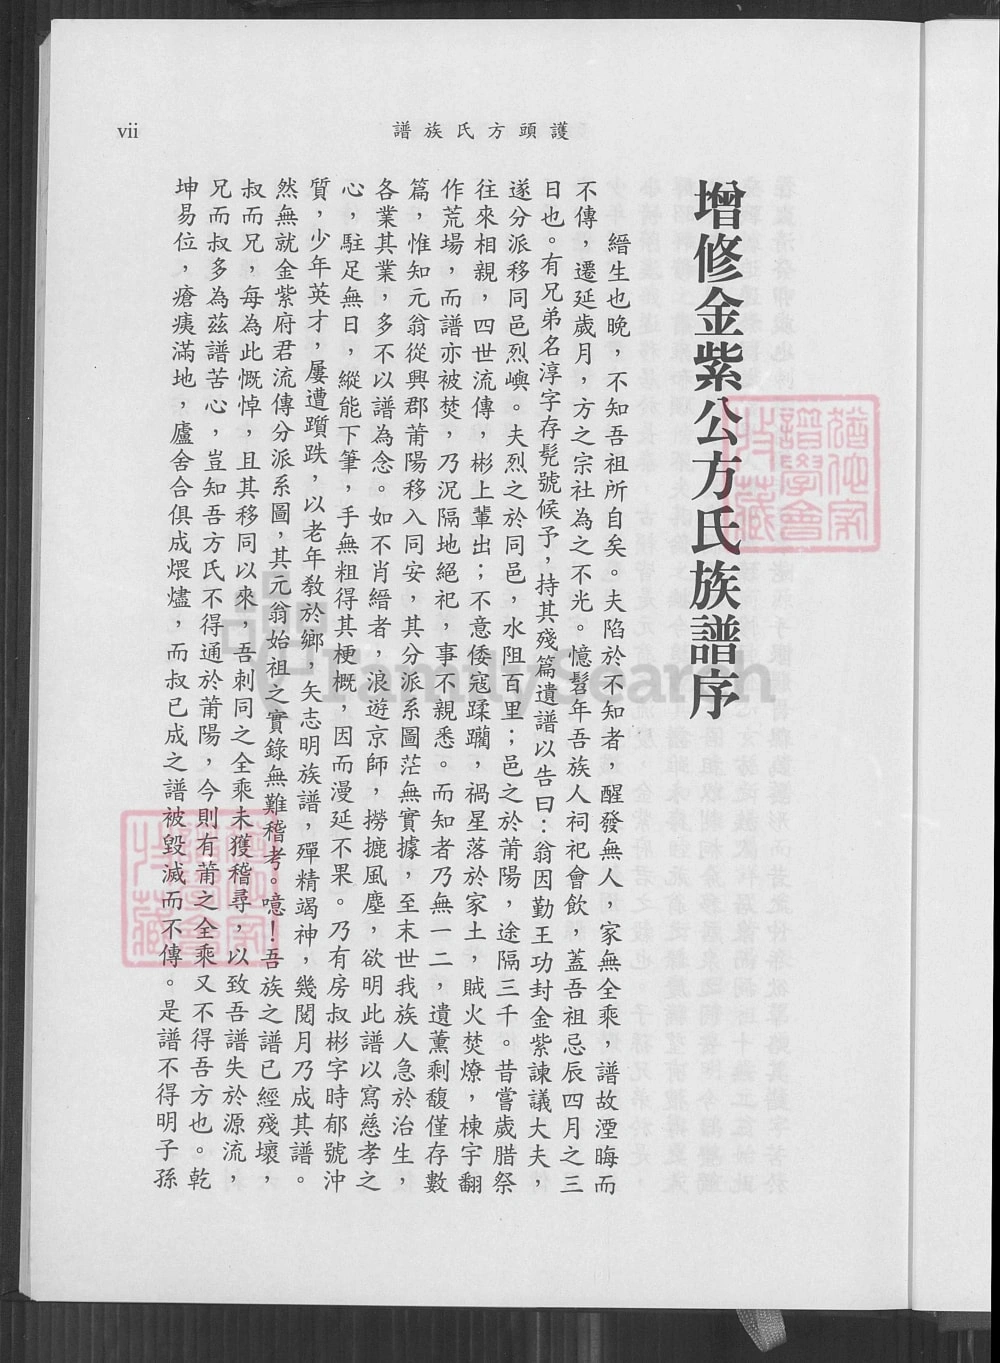 vii
護頭方氏族譜
增修金紫公方氏族譜序
縉生也晚，不知吾祖所自矣。夫陷於不知者，醒發無人，家無全乘，譜故湮晦而
不傳，遷延歲月，方之宗社為之不光。憶髫年吾族人祠祀會飲，蓋吾祖忌辰四月之三
日也。有兄弟名淳字存髡號候予，持其殘篇遺譜以告曰：翁因勤王功封金紫諫議大夫，
遂分派移同邑烈嶼。夫烈之於同邑，水阻百里；邑之於莆陽，途隔三千。昔嘗歲腊祭
往來相親，四世流傳，彬上輩出；不意倭寇蹂躪，禍星落於家土，賊火焚燎，棟宇翻
作荒場，而譜亦被焚，乃沉隔地絕祀，事不親悉。而知者乃無一二，遺薰剩馥僅存數
篇，惟知元翁從興郡莆陽移入同安，其分派系圖茫無實據，至末世我族人急於治生，
各業其業，多不以譜為念。如不肖縉者，浪遊京師，撈摝風塵，欲明此譜以寫慈孝之
心，駐足無日，縱能下筆，手無粗得其梗概，因而漫延不果。乃有房叔彬字時郁號沖
質，少年英才，屢遭躓跌，以老年教於鄉，矢志明族譜，殫精竭神，幾閱月乃成其譜。
然無就金紫府君流傳分派系圖，其元翁始祖之實錄無難稽考。噫！吾族之譜已經殘壞，
叔而兄，每為此慨悼，且其移同以來，吾刺同之全乘未獲稽尋，以致吾譜失於源流，
兄而叔多為茲譜苦心，豈知吾方氏不得通於莆陽，今則有莆之全乘又不得吾方也。乾
坤易位，瘡痍滿地，廬舍合俱成煨燼，而叔已成之譜被毀滅而不傳。是譜不得明子孫
FamilySearch